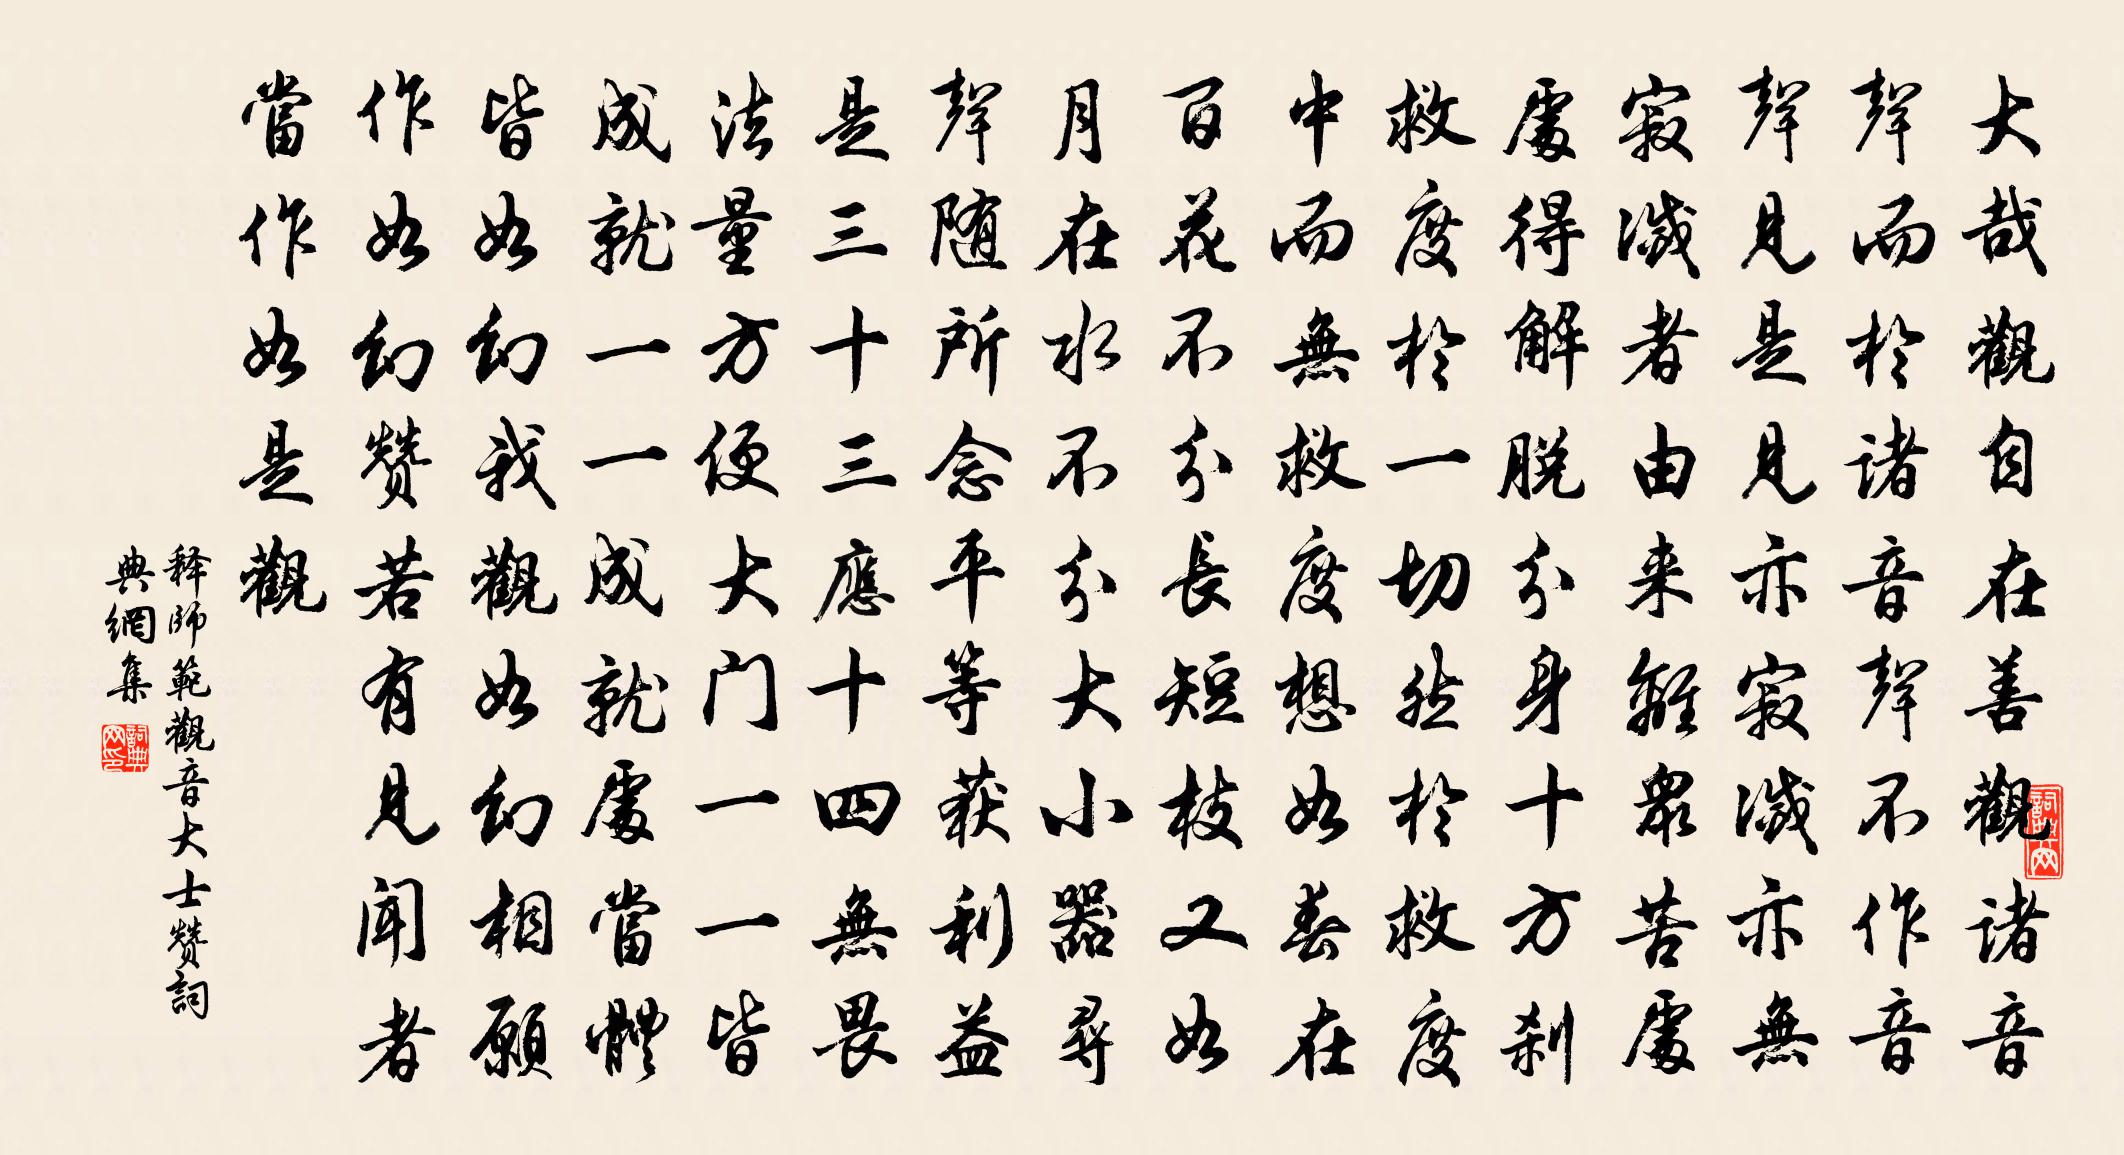 大哉觀自在善觀諸音
聲而於諸音聲不作音
聲見是見亦寂滅亦無
寂滅者由来離衆苦處
處得解脱分身十方刹
救度於一切然於救度
中而無救度想如春在
百花不分長短枝又如
月在水不分大小器尋
聲随所念平等获利益
是三十三應十四無畏
法量方便大门一一皆
成就一一成就處當體
皆如幻我觀如幻相願
作如幻赞若有見闻者
當作如是觀
释師範觀音大士赞詞
典網集
詞典网
詞典网印